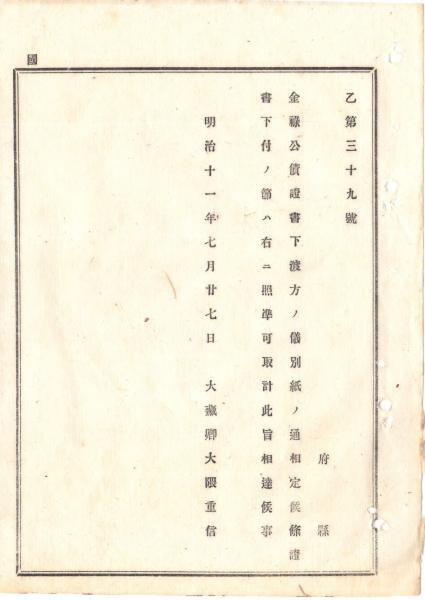 國
乙第三十九號
府縣
金祿公債證書下渡方ノ儀別紙ノ通相定候條證
書下付ノ節ハ右ニ照準可取計此旨相達候事
明治十一年七月廿七日 大藏卿大隈重信